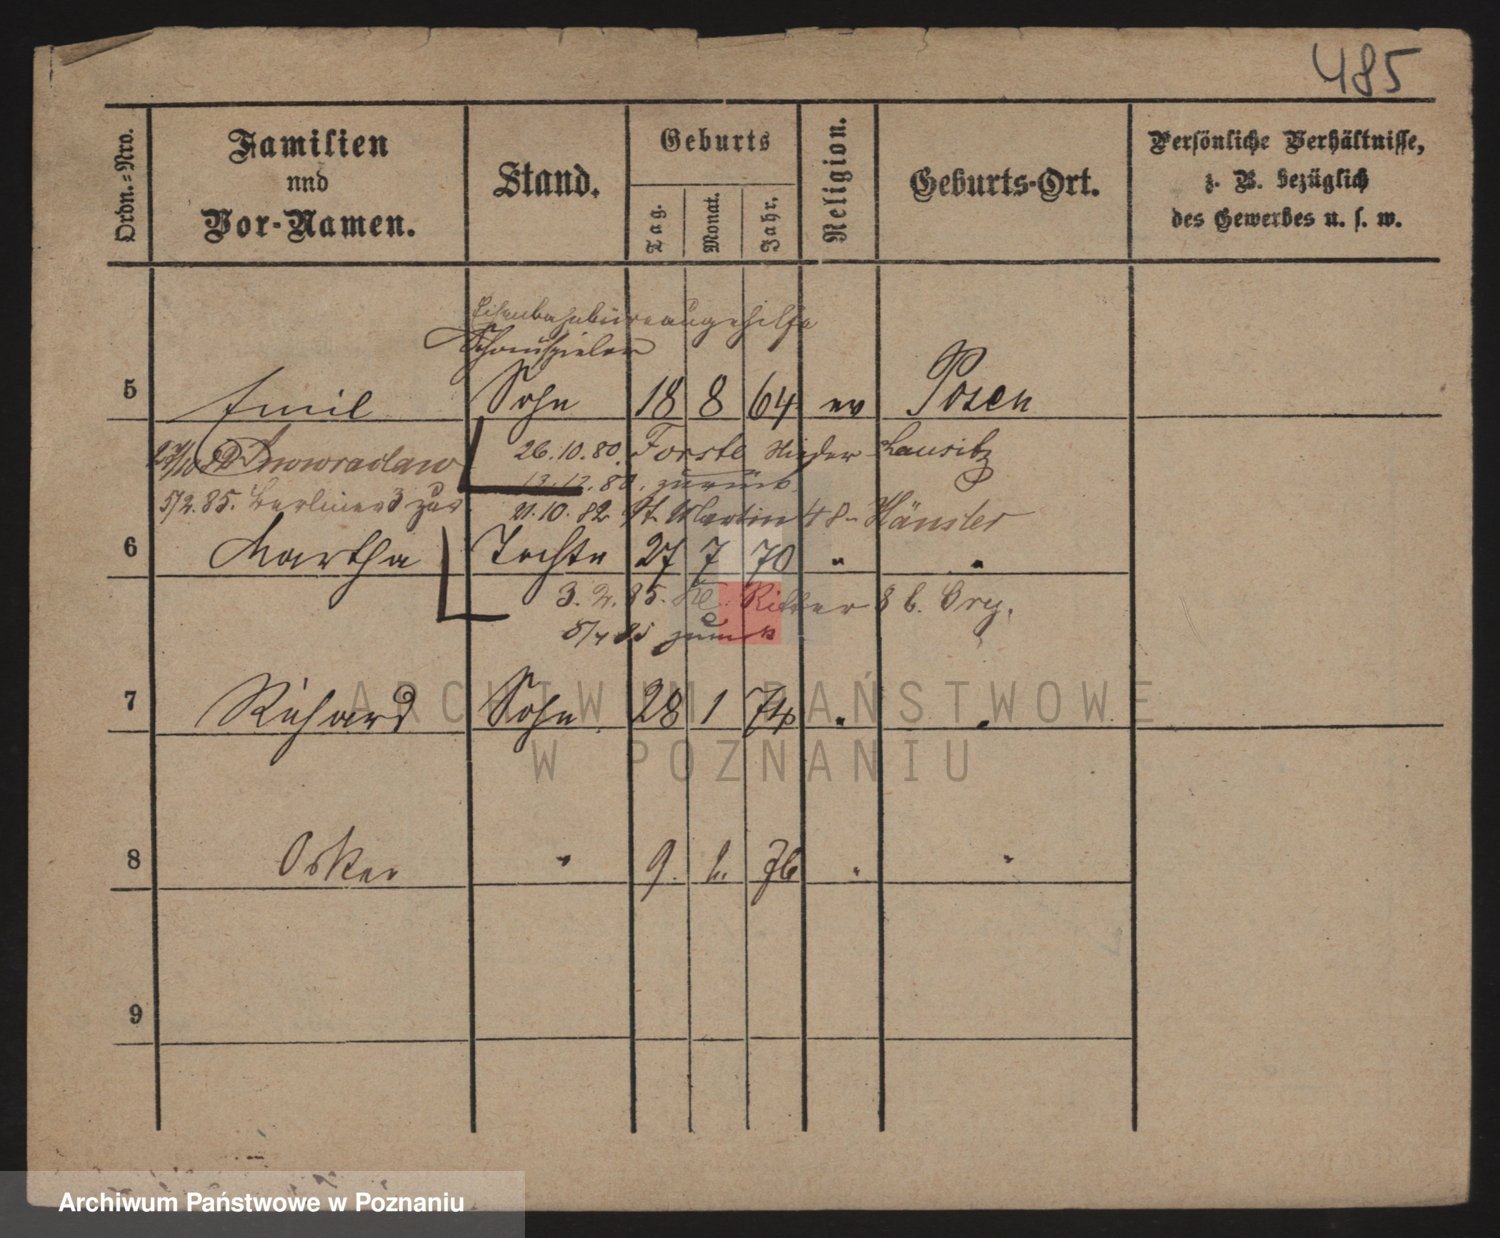 485
Ordn.-Nro.
Familien
und
Vor-Namen.
Stand.
Geburts
Tag.
Monat.
Jahr.
Religion.
Geburts-Ort.
Persönliche Verhältnisse,
z. B. bezüglich
des Gewerbes u. s. w.
Eisenbahnbüreaugehilfe
Schauspieler
5 Emil Sohn 18 8 64 ev Posen
Inowraclaw 26.10.80. Forste Nieder Lausitz
12.12.80. zurück
5/2.85. Berlinerst 3 zur 21.10.82. St. Martin 48 Hänsler
6 Martha Tochter 27 7 70 " "
3.2.85. Kl. Ritter 8 b.
5/4 85 zurück
7 Richard Sohn 28 1 74 " "
8 Oskar " 9. 2. 76 " "
9
ARCHIWUM PAŃSTWOWE
W POZNANIU
Archiwum Państwowe w Poznaniu